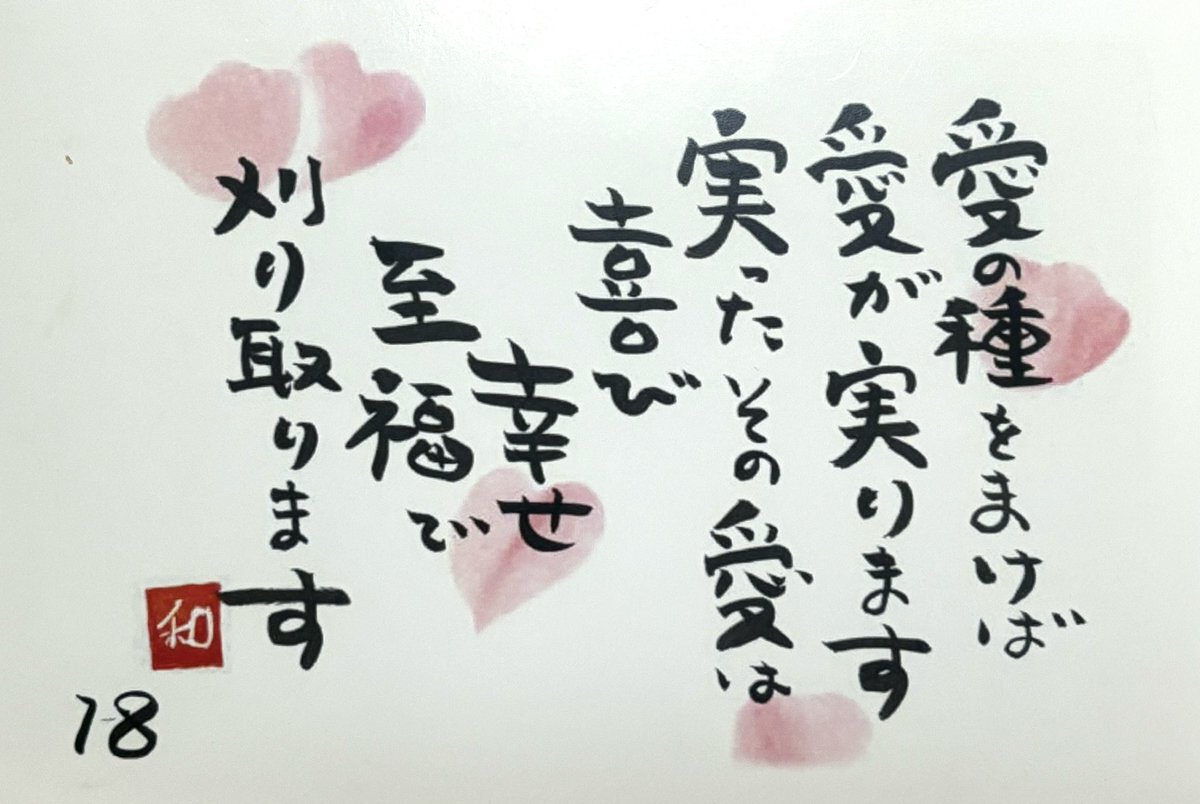 愛の種をまけば
愛が実ります
実ったその愛は
喜び
幸せ
至福で
刈り取ります
和
18